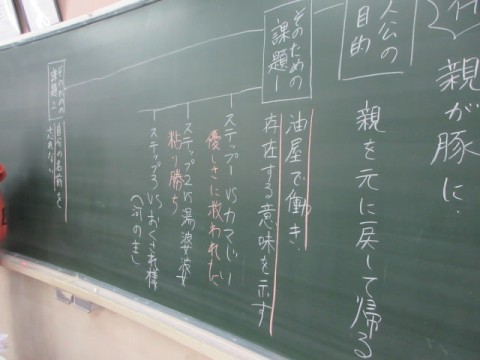 親が豚に.
人公の
目的
親を元に戻して帰る
そのための
課題1
油屋で働き.
存在する意味を示す
ステップ1 VS カマじい
優しさに救われた
ステップ2 VS 湯婆婆
粘り勝ち
ステップ3 VS おくされ様
(河の主)
そのための
課題2
自分の名前を
忘れない